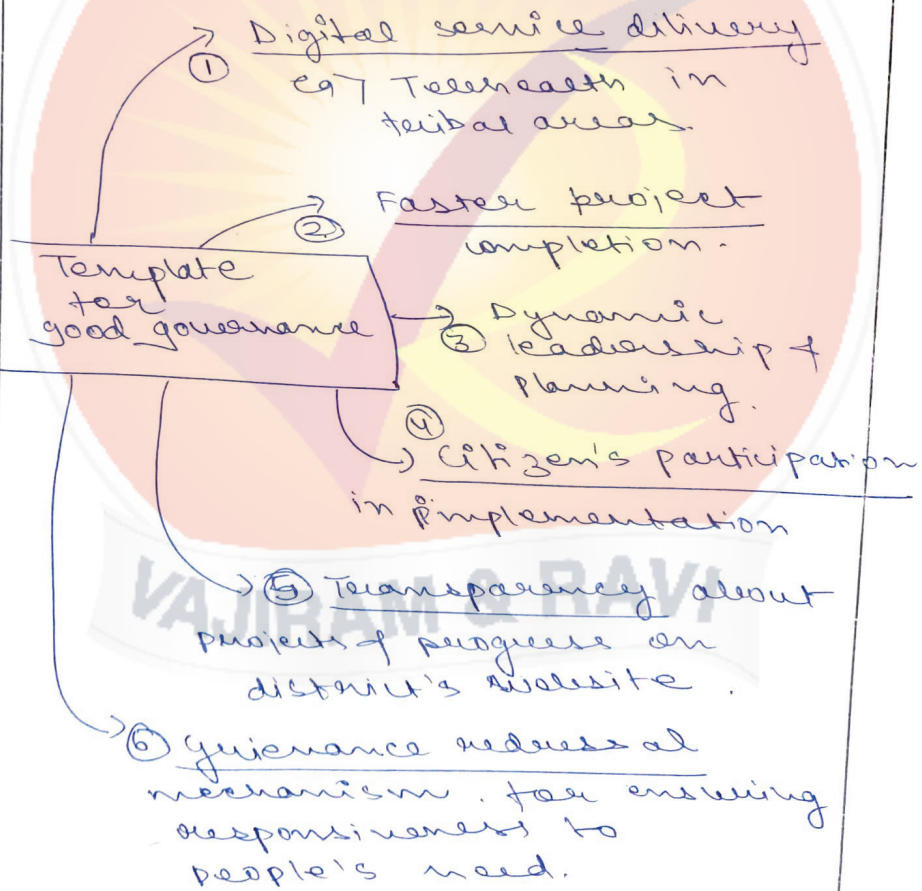 ① Digital service dilivery
eg) Telehealth in
tribal areas.
② Faster project
completion.
Template
for
good governance
③ Dynamic
leadership &
Planning.
④
Citizen's participation
in implementation
VAJIRAM & RAVI
⑤ Transparency about
projects & progress on
district's website.
⑥ grievance redressal
mechanism. for ensuring
responsiveness to
people's need.